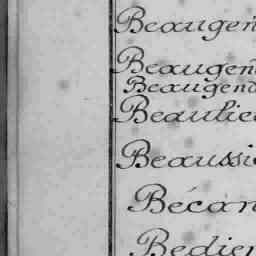 Beaugen
Beaugen
Beaugend
Beaulieu
Beaussi
Bécan
Bedier